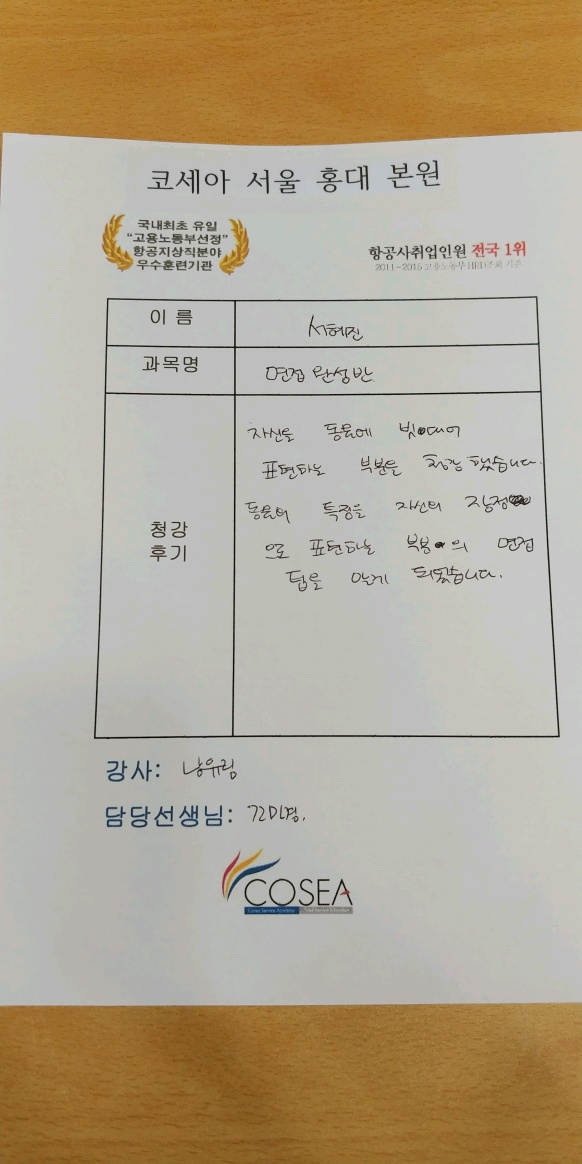 코세아 서울 홍대 본원
국내최초 유일
"고용노동부선정"
항공지상직분야
우수훈련기관
항공사취업인원 전국 1위
2011~2015 고용노동부 HRD조회 기준
이 름
서혜진
과목명
면접 완성반
청강
후기
자신을 동물에 빗대어
표현하는 부분을 청강 했습니다.
동물의 특징을 자신의 장점
으로 표현하는 부분의 면접
팁을 알게 되었습니다.
강사: 유림
담당선생님:
COSEA